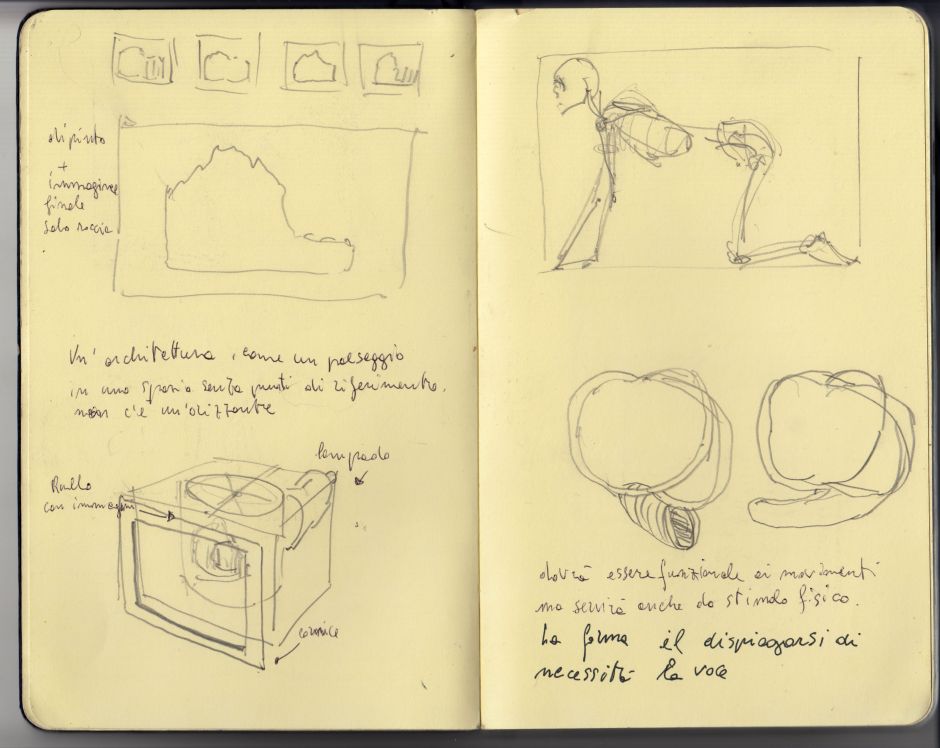 dipinto
+
immagine
finale
solo roccia
Un'architettura, come un paesaggio
in uno spazio senza punti di riferimento.
non c'è un'orizzonte
lampada
Rullo
con immagini
cornice
dovrà essere funzionale ai movimenti
ma servirà anche da stimolo fisico.
La forma è il dispiegarsi di
necessità la voce